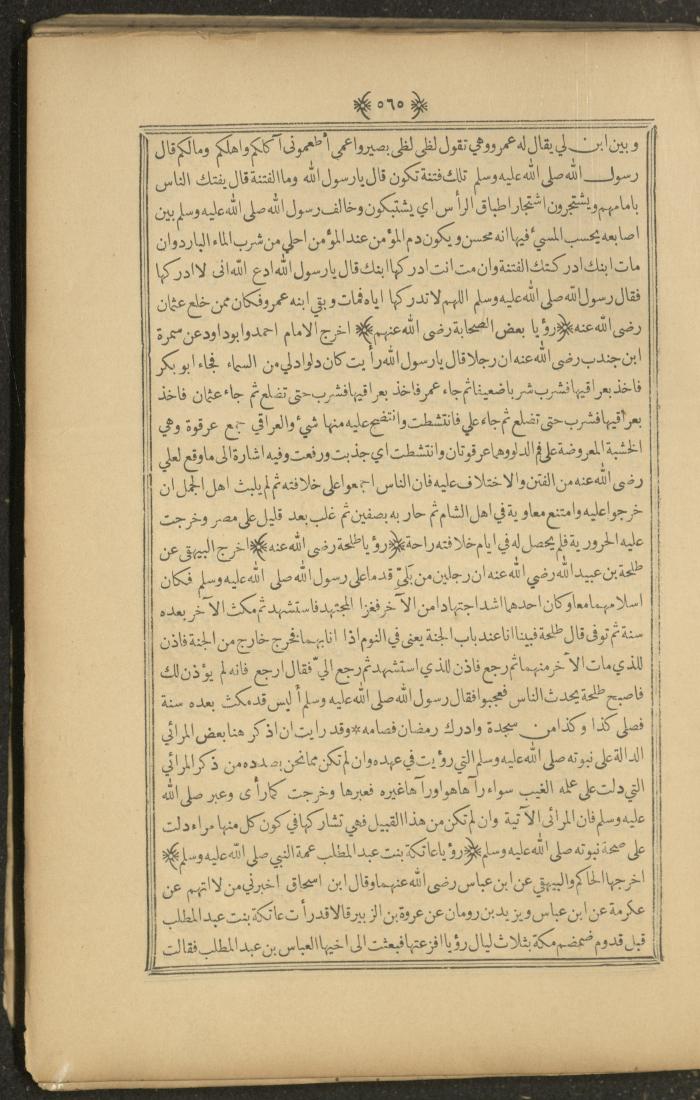 ﴿ ٥٦٥ ﴾
وبين ابن لي يقال له عمرو وهي تقول لظى لظى بصير واعمى أطعموني آكلكم واهلكم ومالكم قال
رسول الله صلى الله عليه وسلم تلك فتنة تكون قال يارسول الله وما الفتنة قال يفتك الناس
بامامهم ويشتجرون اشتجار اطباق الرأس اي يشتبكون وخالف رسول الله صلى الله عليه وسلم بين
اصابعه يحسب المسيء فيها انه محسن ويكون دم المؤمن عند المؤمن احلى من شرب الماء البارد وان
مات ابنك ادركتك الفتنة وان مت انت ادركها ابنك قال يارسول الله ادع الله اني لا ادركها
فقال رسول الله صلى الله عليه وسلم اللهم لا تدركها اياه فمات وبقي ابنه عمرو فكان ممن خلع عثمان
رضى الله عنه ﴿رؤيا بعض الصحابة رضى الله عنهم﴾ اخرج الامام احمد وابو داود عن سمرة
ابن جندب رضى الله عنه ان رجلا قال يارسول الله رأيت كان دلوا دلي من السماء فجاء ابو بكر
فاخذ بعراقيها فشرب شربا ضعيفا ثم جاء عمر فاخذ بعراقيها فشرب حتى تضلع ثم جاء عثمان فاخذ
بعراقيها فشرب حتى تضلع ثم جاء علي فانتشطت وانتضح عليه منها شيء والعراقي جمع عرقوة وهي
الخشبة المعروضة على فم الدلو وهما عرقوتان وانتشطت اي جذبت ورفعت وفيه اشارة الى ما وقع لعلي
رضى الله عنه من الفتن والاختلاف عليه فان الناس اجمعوا على خلافته ثم لم يلبث اهل الجمل ان
خرجوا عليه وامتنع معاوية في اهل الشام ثم حاربه بصفين ثم غلب بعد قليل على مصر وخرجت
عليه الحرورية فلم يحصل له في ايام خلافته راحة ﴿رؤيا طلحة رضى الله عنه﴾ اخرج البيهقي عن
طلحة بن عبيد الله رضي الله عنه ان رجلين من بَلِيّ قدما على رسول الله صلى الله عليه وسلم فكان
اسلامهما معا وكان احدهما اشد اجتهادا من الآخر فغزا المجتهد فاستشهد ثم مكث الآخر بعده
سنة ثم توفى قال طلحة فبينا انا عند باب الجنة يعنى في النوم اذا انا بهما فخرج خارج من الجنة فاذن
للذي مات الآخر منهما ثم رجع فاذن للذي استشهد ثم رجع اليّ فقال ارجع فانه لم يؤذن لك
فاصبح طلحة يحدث الناس فعجبوا فقال رسول الله صلى الله عليه وسلم أليس قد مكث بعده سنة
فصلى كذا وكذا من سجدة وادرك رمضان فصامه * وقد رايت ان اذكر هنا بعض المرائي
الدالة على نبوته صلى الله عليه وسلم التي رؤيت في عهده وان لم تكن مما نحن بصدده من ذكر المرائي
التي دلت على علمه الغيب سواء رآها هو او رآها غيره فعبرها وخرجت كما رأى وعبر صلى الله
عليه وسلم فان المرائى الآتية وان لم تكن من هذا القبيل فهي تشاركها في كون كل منها مراء دلت
على صحة نبوته صلى الله عليه وسلم ﴿رؤيا عاتكة بنت عبد المطلب عمة النبي صلى الله عليه وسلم﴾
اخرجها الحاكم والبيهقي عن ابن عباس رضى الله عنهما وقال ابن اسحاق اخبرني من لا اتهم عن
عكرمة عن ابن عباس ويزيد بن رومان عن عروة بن الزبير قالا قد رأت عاتكة بنت عبد المطلب
قبل قدوم ضمضم مكة بثلاث ليال رؤيا افزعتها فبعثت الى اخيها العباس بن عبد المطلب فقالت